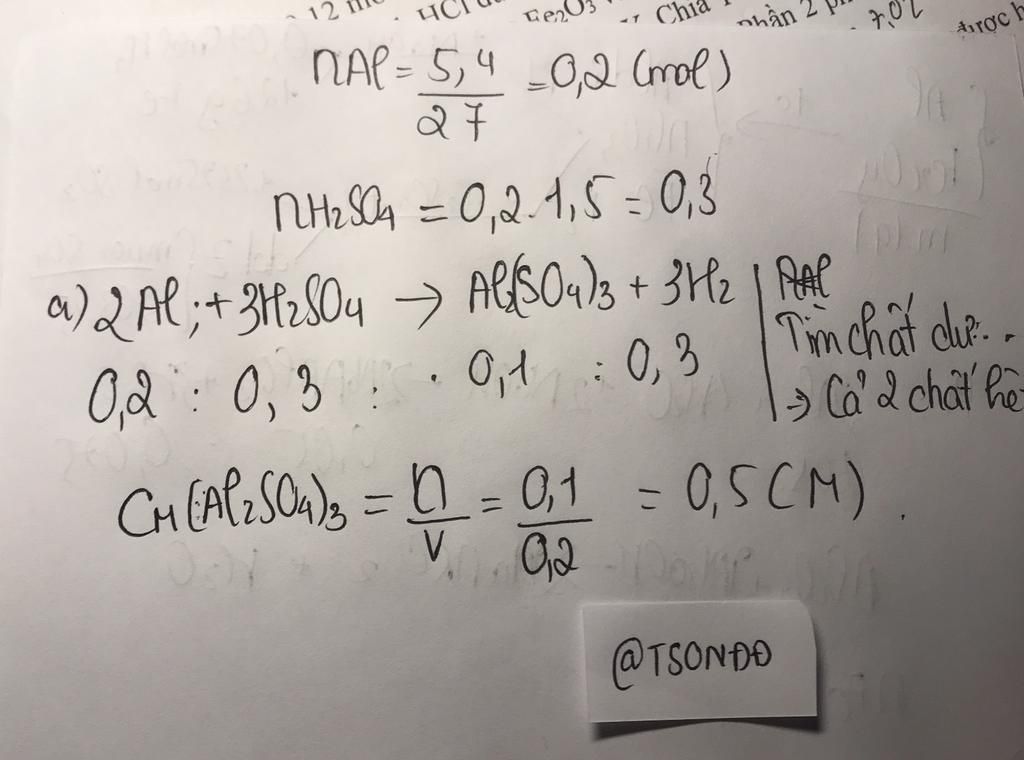 12
HCl
Fe2O3
Chia
phần 2
7,02
được h
nAl = 5,4 / 27 = 0,2 (mol)
nH2SO4 = 0,2.1,5 = 0,3
a) 2Al + 3H2SO4 → Al2(SO4)3 + 3H2
0,2 : 0,3 : 0,1 : 0,3
Tìm chất dư..
=> Cả 2 chất hế
CM(Al2SO4)3 = n / V = 0,1 / 0,2 = 0,5 (M).
@TSONĐĐ